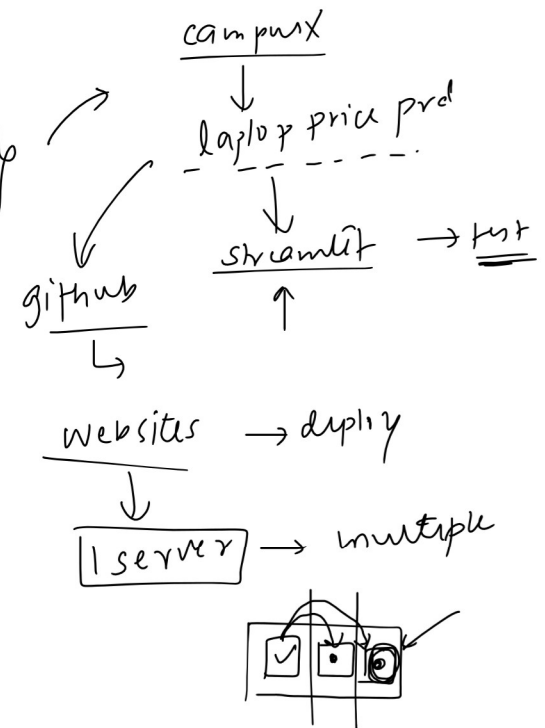 campusx
laptop price prd
streamlit → test
github
websites → deploy
1 server → multiple